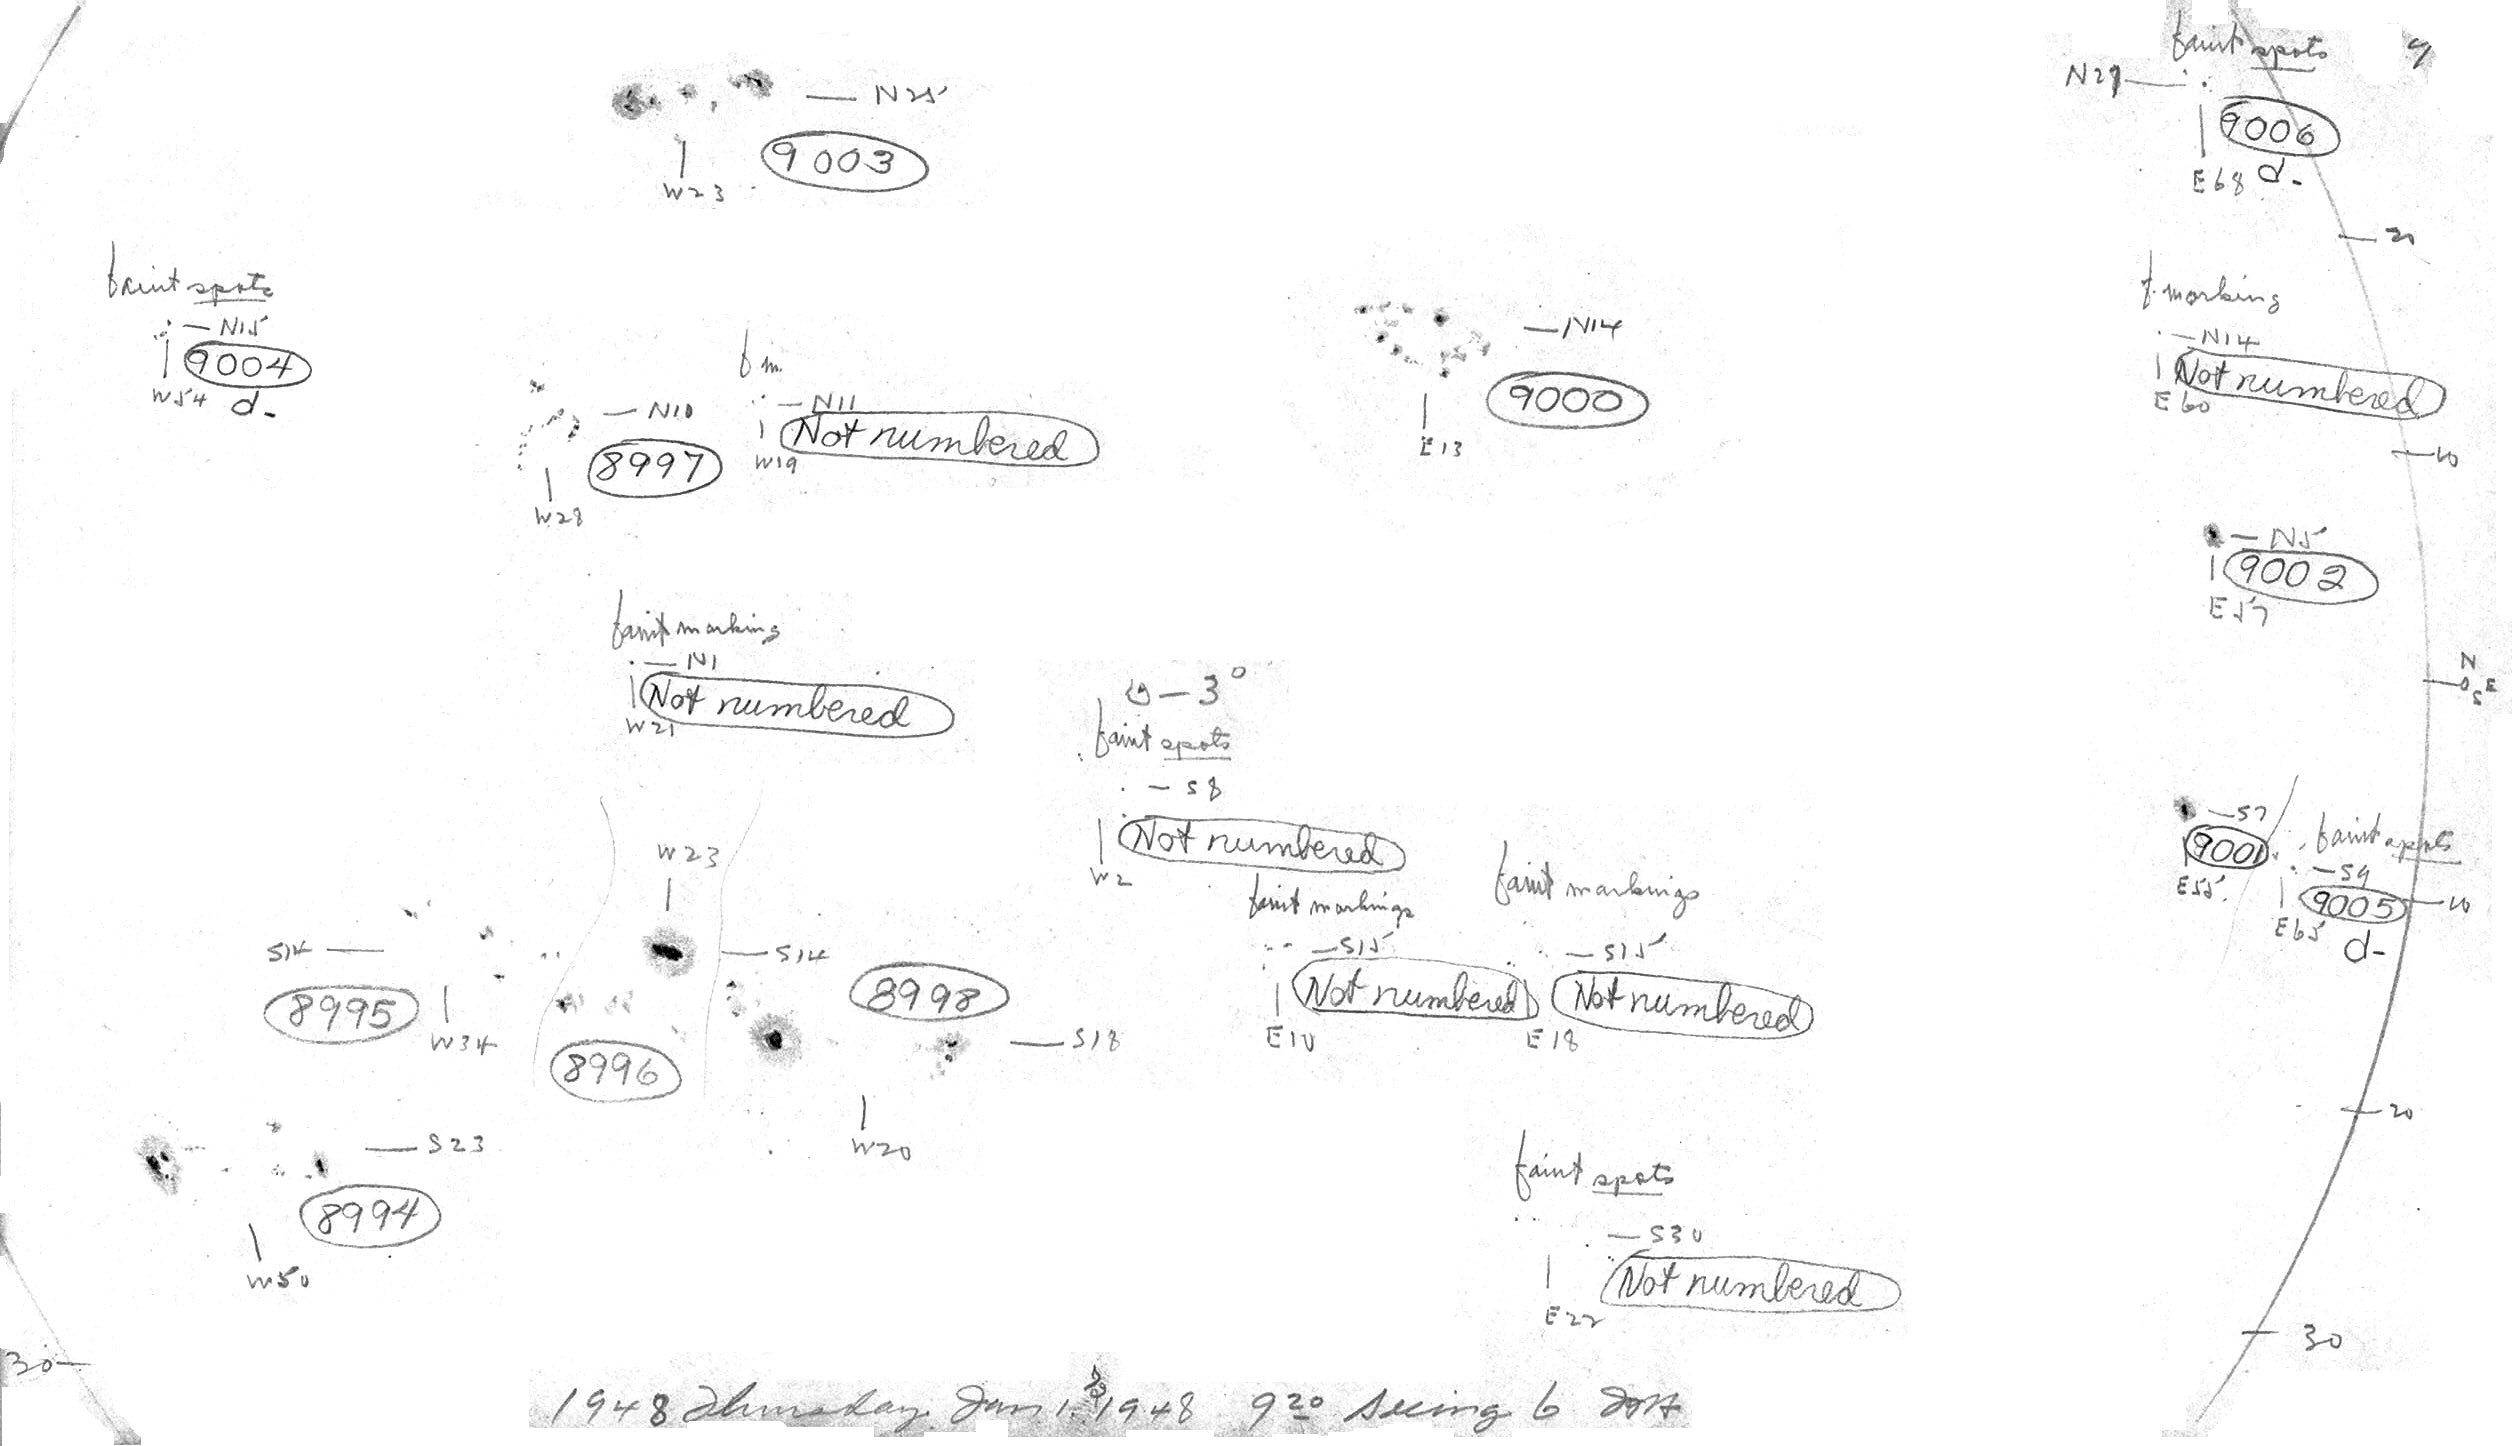 faint spots
N29
9006
E68 d-
N25
9003
W23
20
faint spots
N15
9004
W54 d-
N14
9000
E13
f. marking
N14
Not numbered
E60
f m.
N11
Not numbered
W19
N10
8997
W28
10
N5
9002
E57
faint marking
N1
Not numbered
W21
N
0 E
S
-3°
faint spots
S8
Not numbered
W2
S7
9001
E55
faint spots
S9
9005
E65 d-
10
W23
S14
8996
S14
8995
W34
8998
S18
W20
faint markings
S15
Not numbered
E10
faint markings
S15
Not numbered
E18
20
S23
8994
W50
faint spots
S30
Not numbered
E22
30
30
1948 Thursday Jan 1. 1948 9 20 seeing 6